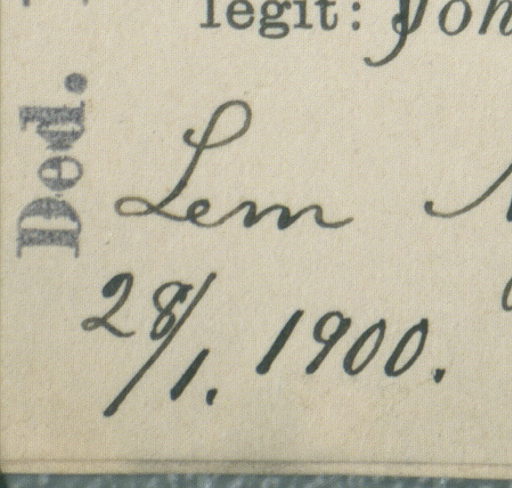 legit: Joh
Lem
28/1. 1900.
Ded.